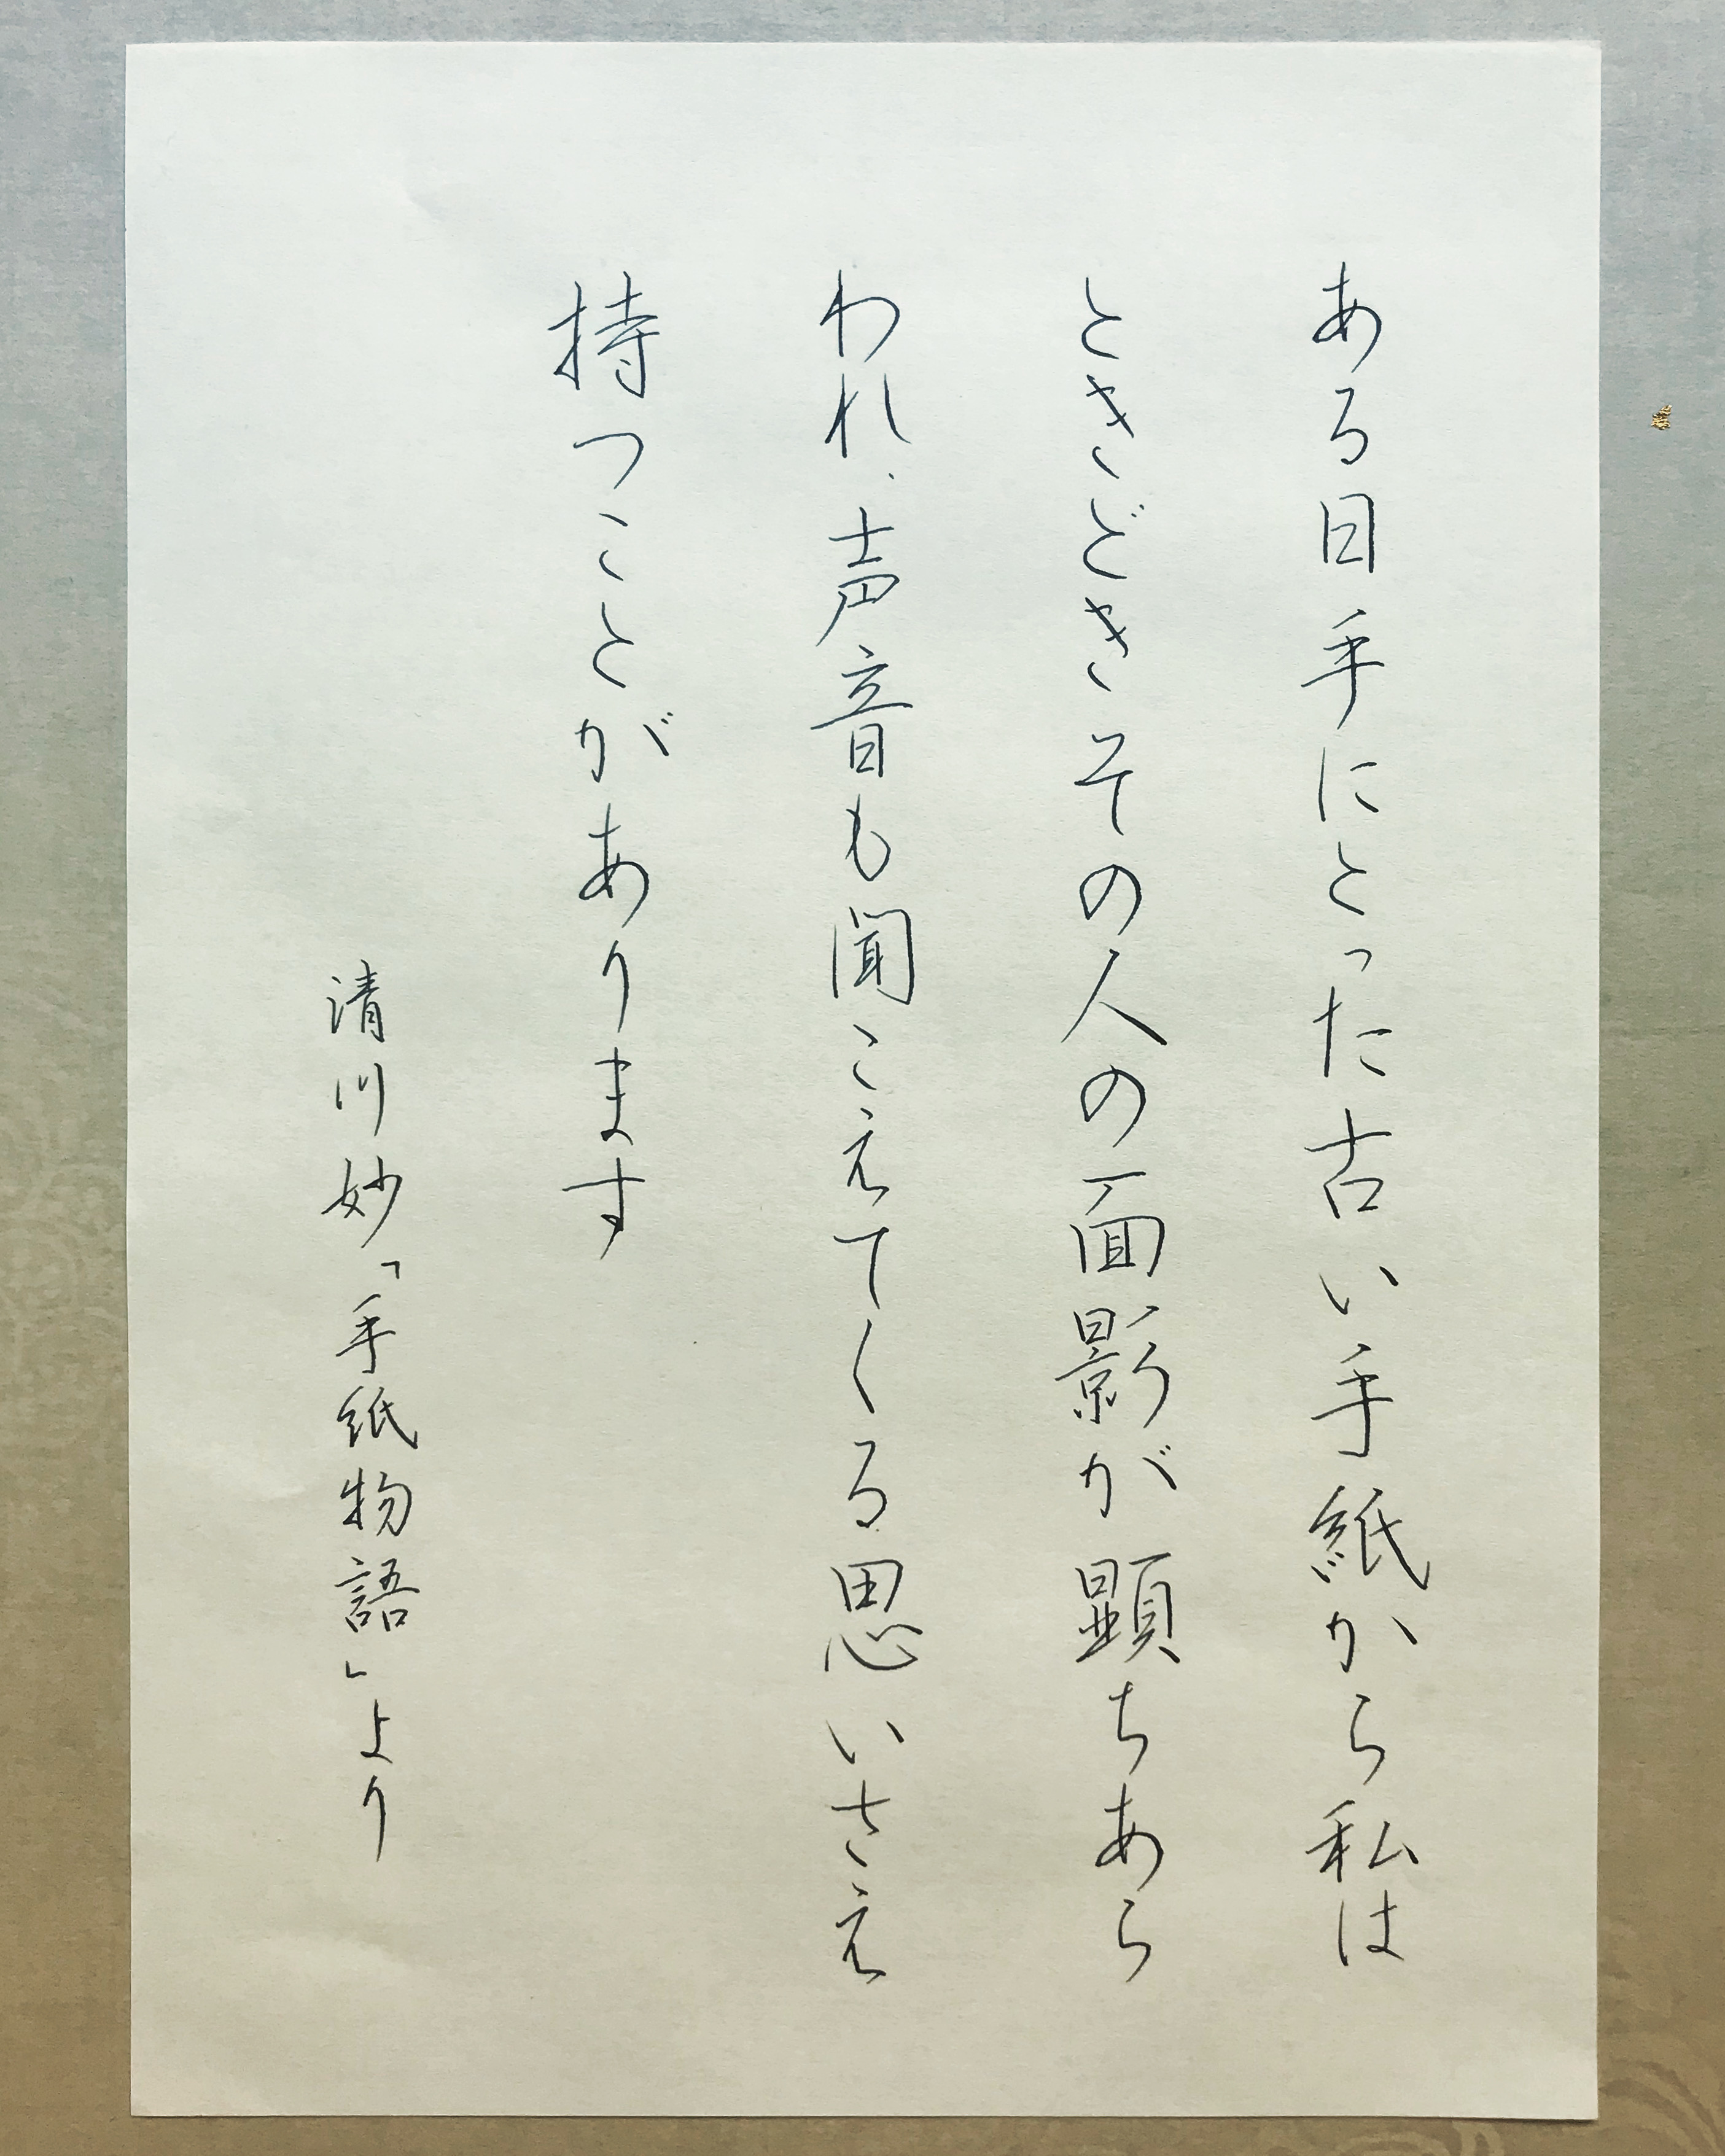 ある日手にとった古い手紙から私は
ときどきその人の面影が顕ちあら
われ、声音も聞こえてくる思いさえ
持つことがあります
清川妙「手紙物語」より